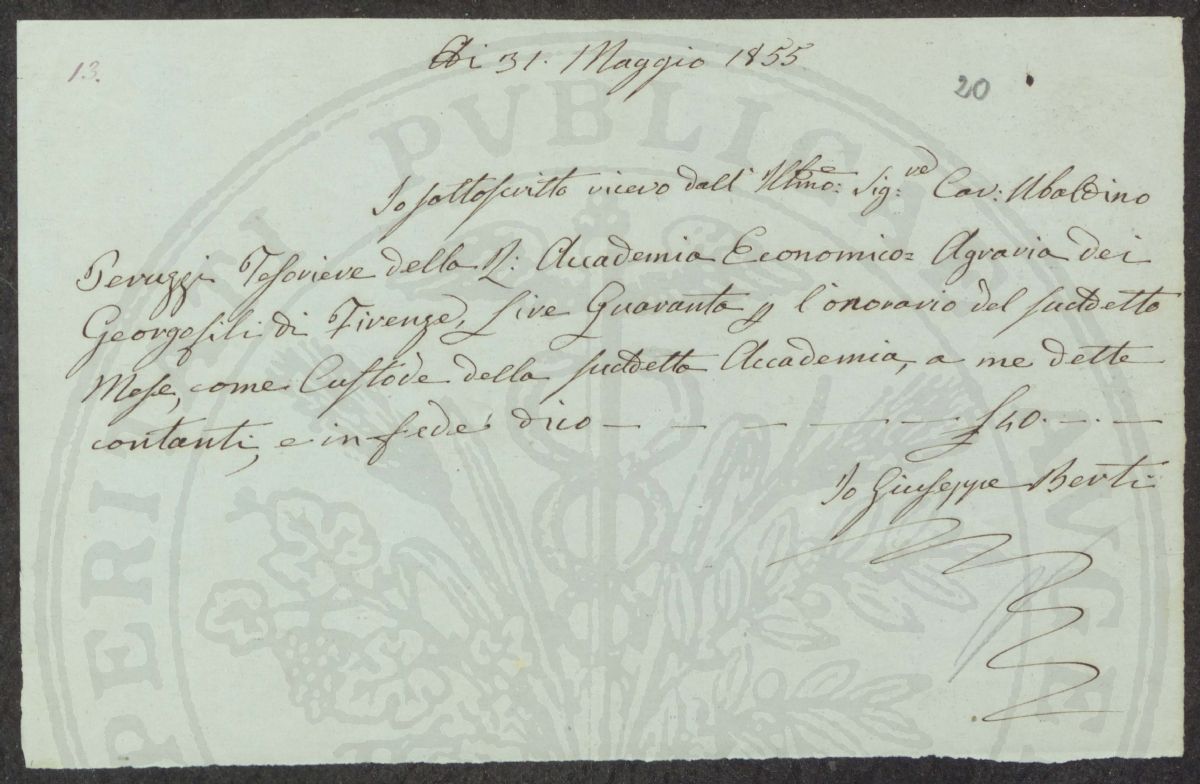 13.
Adi 31. Maggio 1855
20
Io sottoscritto ricevo dall' Illmo: Sig:re Cav: Ubaldino
Peruzzi Tesoriere della R: Accademia Economico= Agraria dei
Georgofili di Firenze, Lire Quaranta p l'onorario del suddetto
Mese, come Custode della suddetta Accademia, a me dette
contanti, e in fede dico — — — — — — £ 40. —. —
Io Giuseppe Berti
PERITI PVBLICAE AVGE